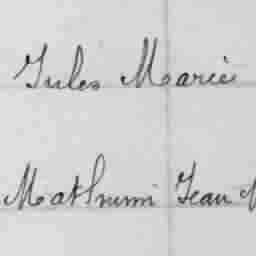 Jules Marie
Mathurin Jean